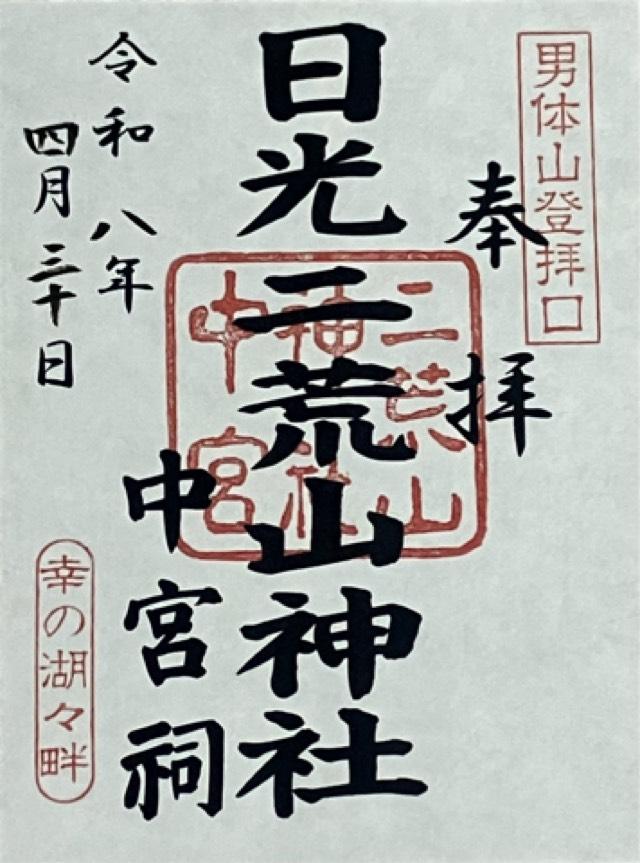 男体山登拝口
奉拝
日光二荒山神社
中宮祠
二荒山
神社
中宮
令和八年
四月三十日
幸の湖々畔